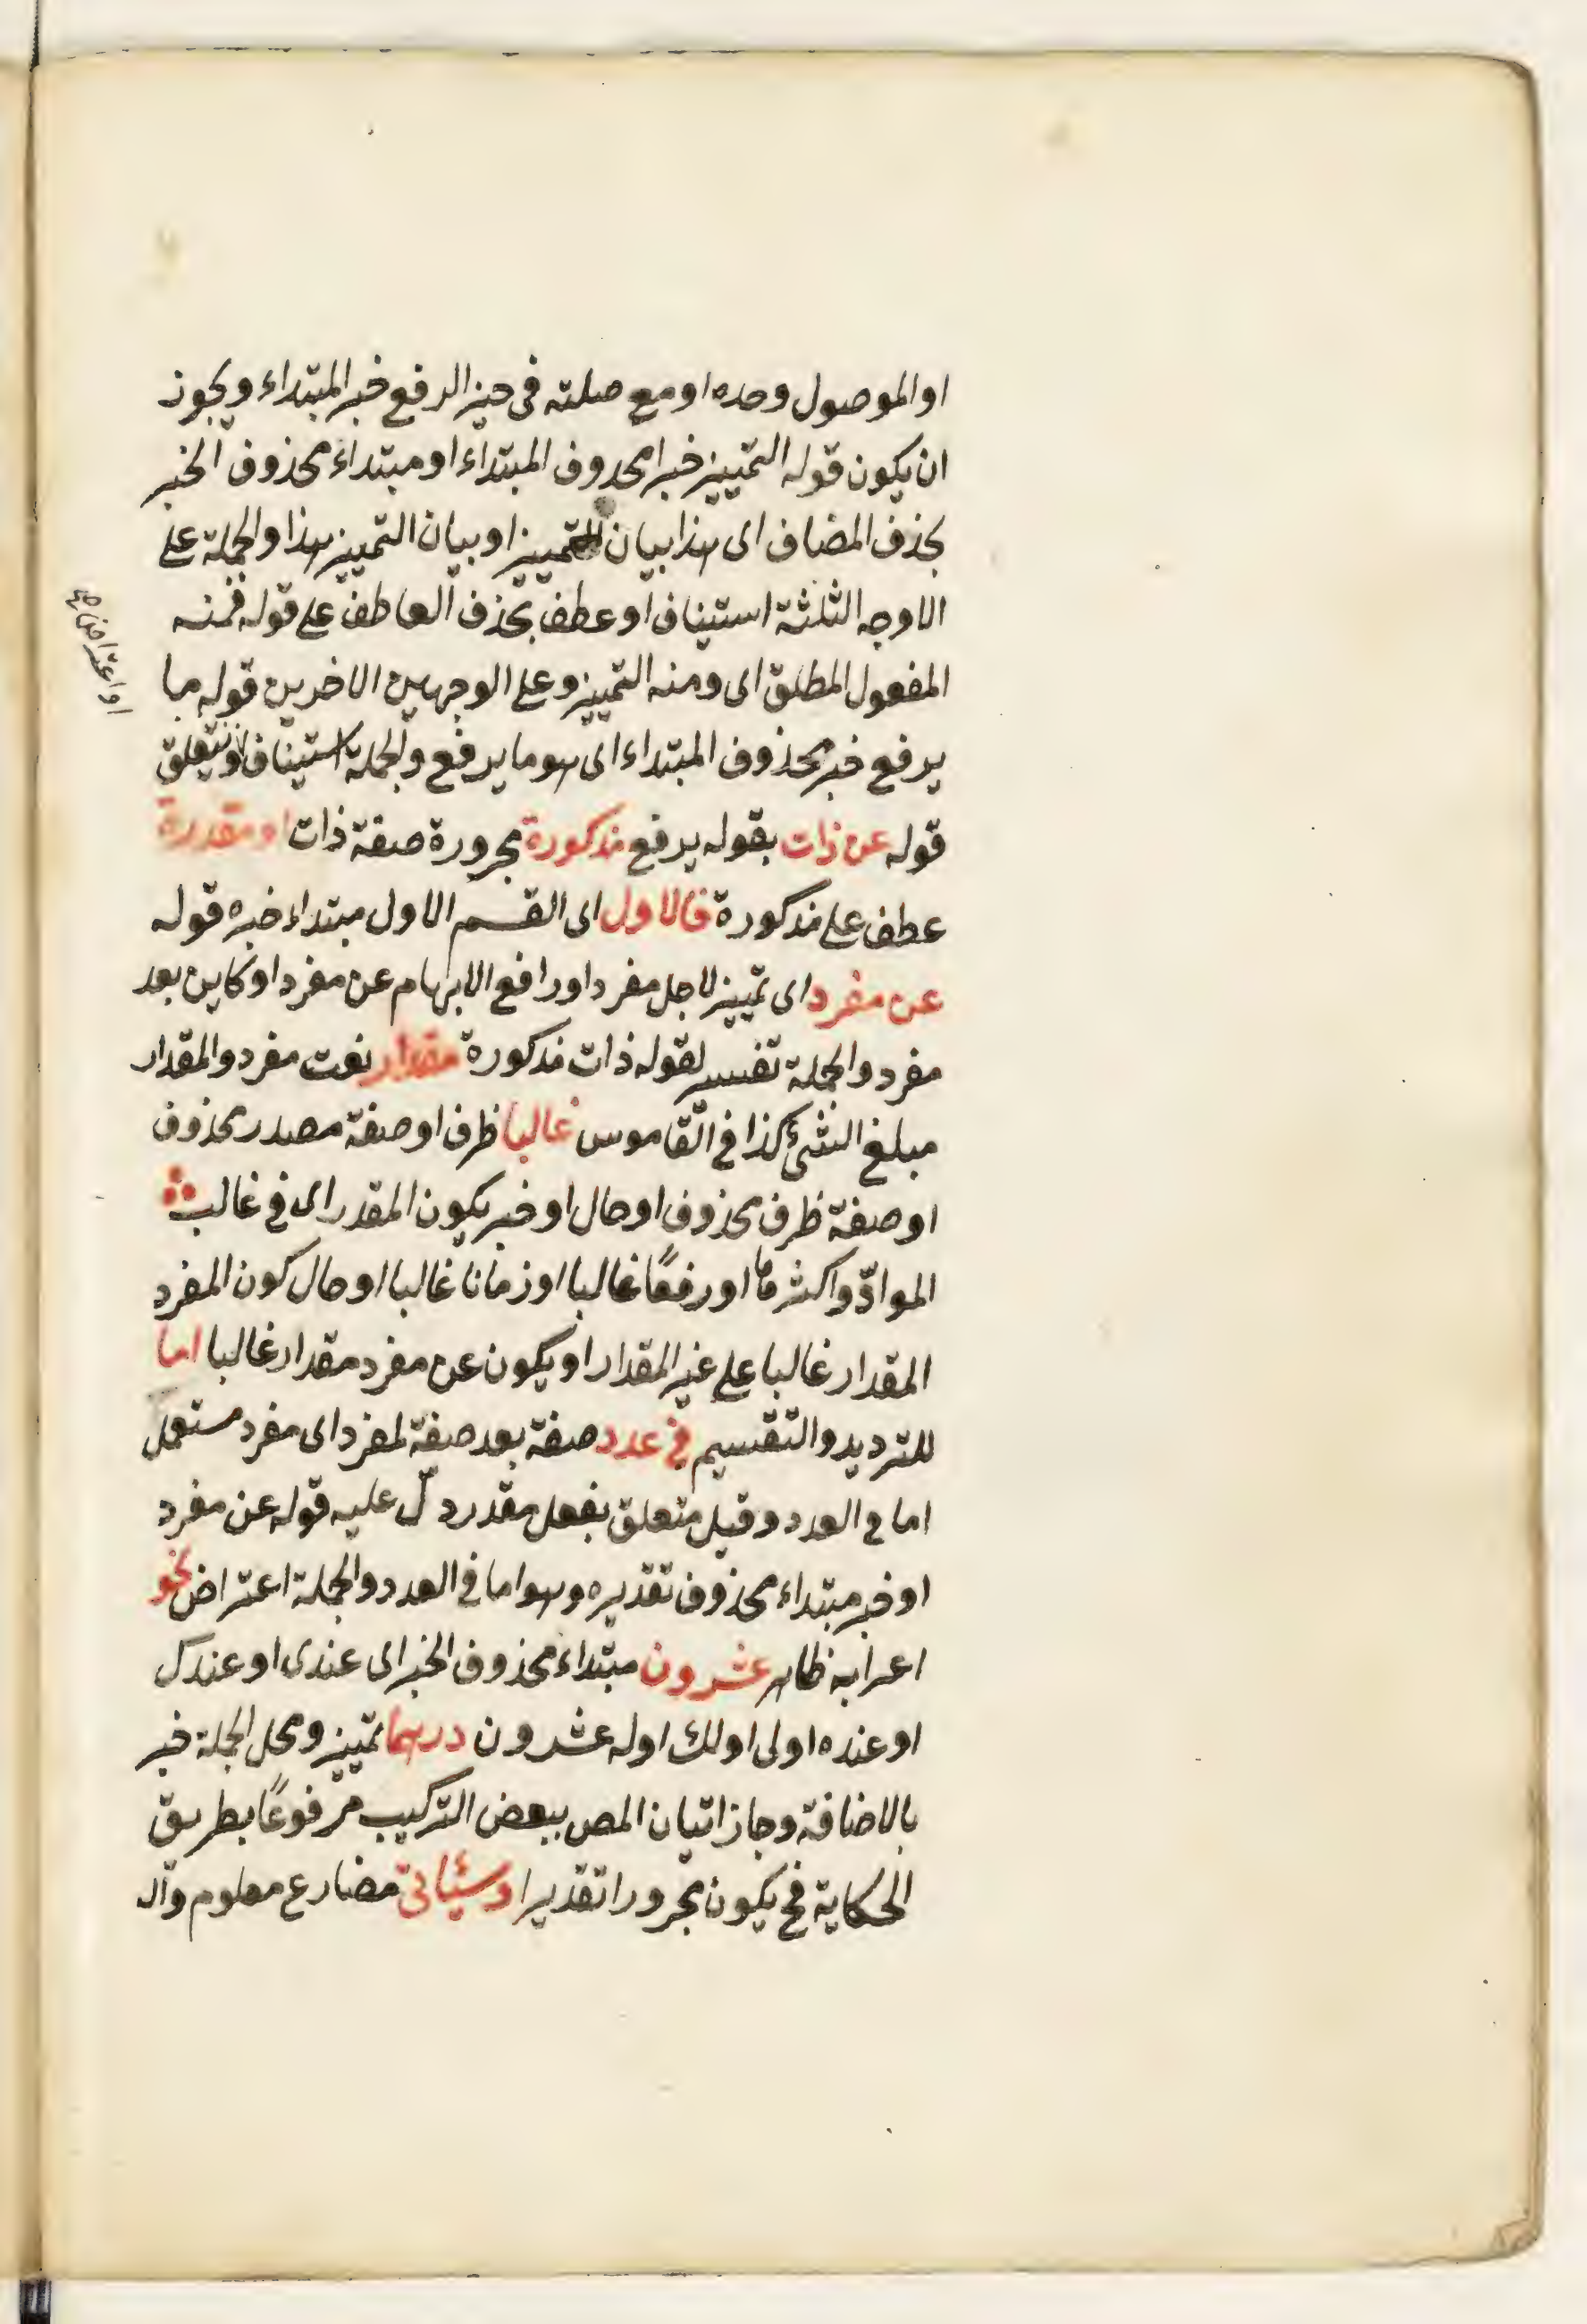 او الموصول وحده او مع صلته فى حيز الرفع خبر المبتداء ويجوز
ان يكون قوله التمييز خبرا محذوف المبتداء او مبتداء محذوف الخبر
بحذف المضاف اى هذا بيان التمييز او بيان التمييز هذا والجملة على
الاوجه الثلثة استيناف او عطف بحذف العاطف على قوله فمنه
المفعول المطلق اى ومنه التمييز وعلى الوجهين الاخرين قوله ما
يرفع خبر محذوف المبتداء اى هو ما يرفع والجملة استيناف او يتعلق
قوله عن ذات بقوله يرفع مذكورة مجرورة صفة ذات او مقدرة
عطف على مذكورة فالاول اى القسم الاول مبتداء خبره قوله
عن مفرد اى تمييز لاجل مفرد او رافع الابهام عن مفرد او كاين بعد
مفرد والجملة تفسير لقوله ذات مذكورة مقدار نعت مفرد والمقدار
مبلغ الشئ كذا فى القاموس غالبا ظرف او صفة مصدر محذوف
او صفة ظرف محذوف او حال او خبر يكون المقدر اى فى غالب
الموادّ واكثرها او رفعًا غالبا او زمانا غالبا او حال كون المفرد
المقدار غالبا على غير المقدار او يكون عن مفرد مقدار غالبا اما
للترديد والتقسيم فى عدد صفة بعد صفة لمفرد اى مفرد مستعمل
اما فى العدد وقيل متعلق بفعل مقدر دلّ عليه قوله عن مفرد
او خبر مبتداء محذوف تقديره وهو اما فى العدد والجملة اعتراض نحو
اعرابه ظاهر عشرون مبتداء محذوف الخبر اى عندى او عندك
او عنده او لى او لك او له عشرون درهما تمييز ومحل الجملة خبر
بالاضافة وجاز اتيان المص ببعض التركيب مرفوعًا بطريق
الحكاية فح يكون مجرورا تقديرا وسيأتى مضارع معلوم وآلـ
او اعتراض